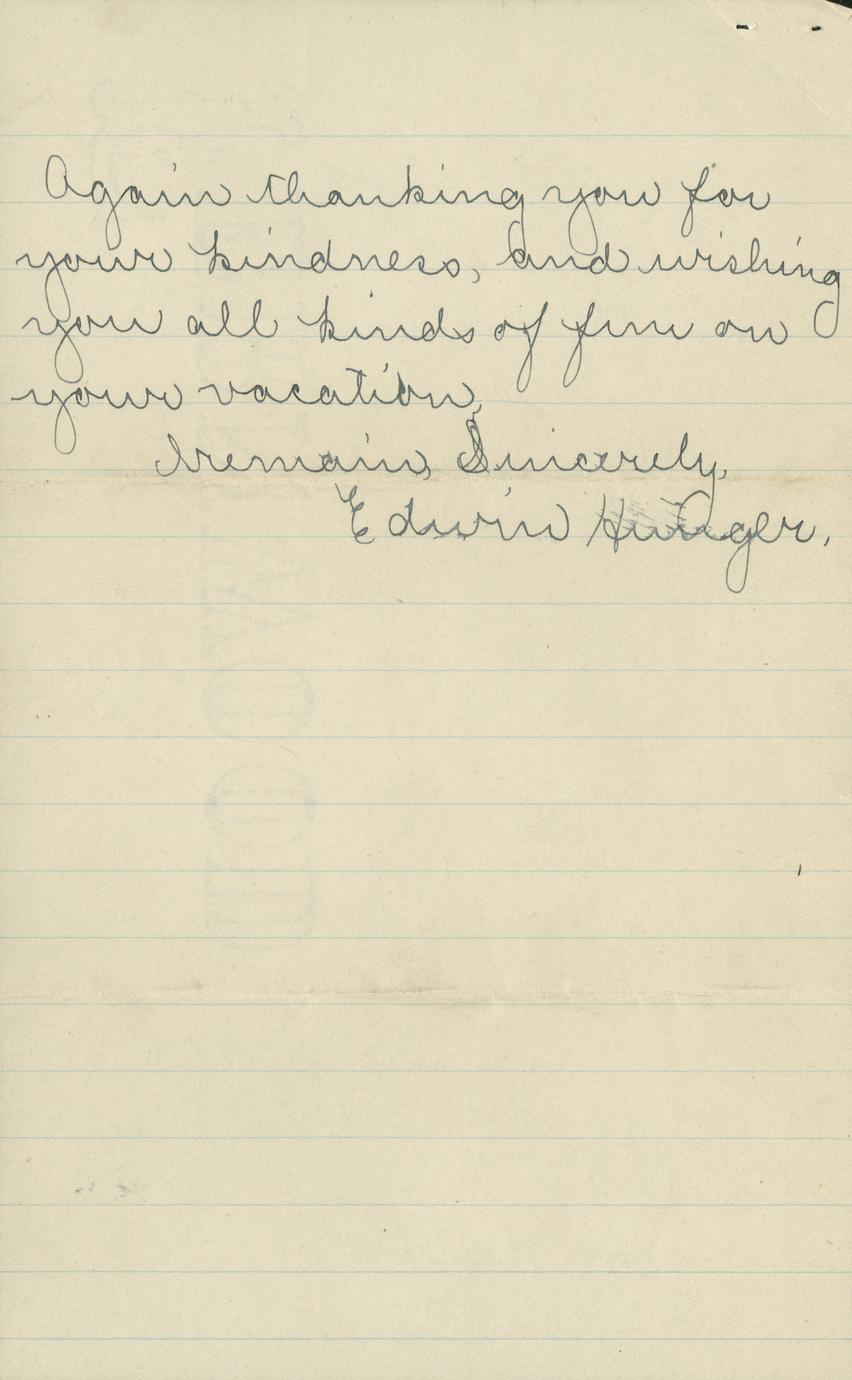 Again thanking you for
your kindness, and wishing
you all kinds of fun on
your vacation,
I remain, Sincerely,
Edwin Hunger.